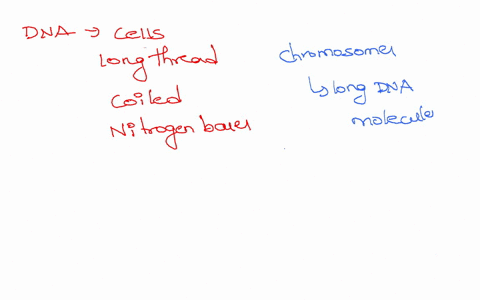 DNA → cells
Long thread
coiled
Nitrogen bases
chromosomes
↳ long DNA
molecule